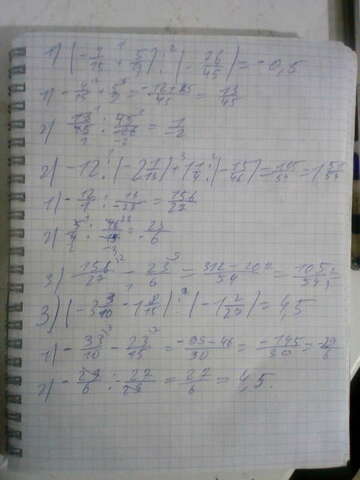 1) (-4/15 + 5/9) : (-26/45) = -0,5
1) -4/15 + 5/9 = -12+25/45 = 13/45
2) 13/45 : 45/-26 = -1/2
2) -12 : (-2 1/13) + 1 1/4 : (-15/46) = 105/54 = 1 51/54
1) -12/1 : 13/-27 = 156/27
2) 5/4 : 46/15 = -23/6
3) 156/27 - 23/6 = 312-207/54 = 105/54
3) (-3 3/10 - 1 8/15) : (-1 2/27) = 4,5
1) -33/10 - 23/15 = -99-46/30 = -145/30 = -29/6
2) -29/6 : -27/29 = 27/6 = 4,5.